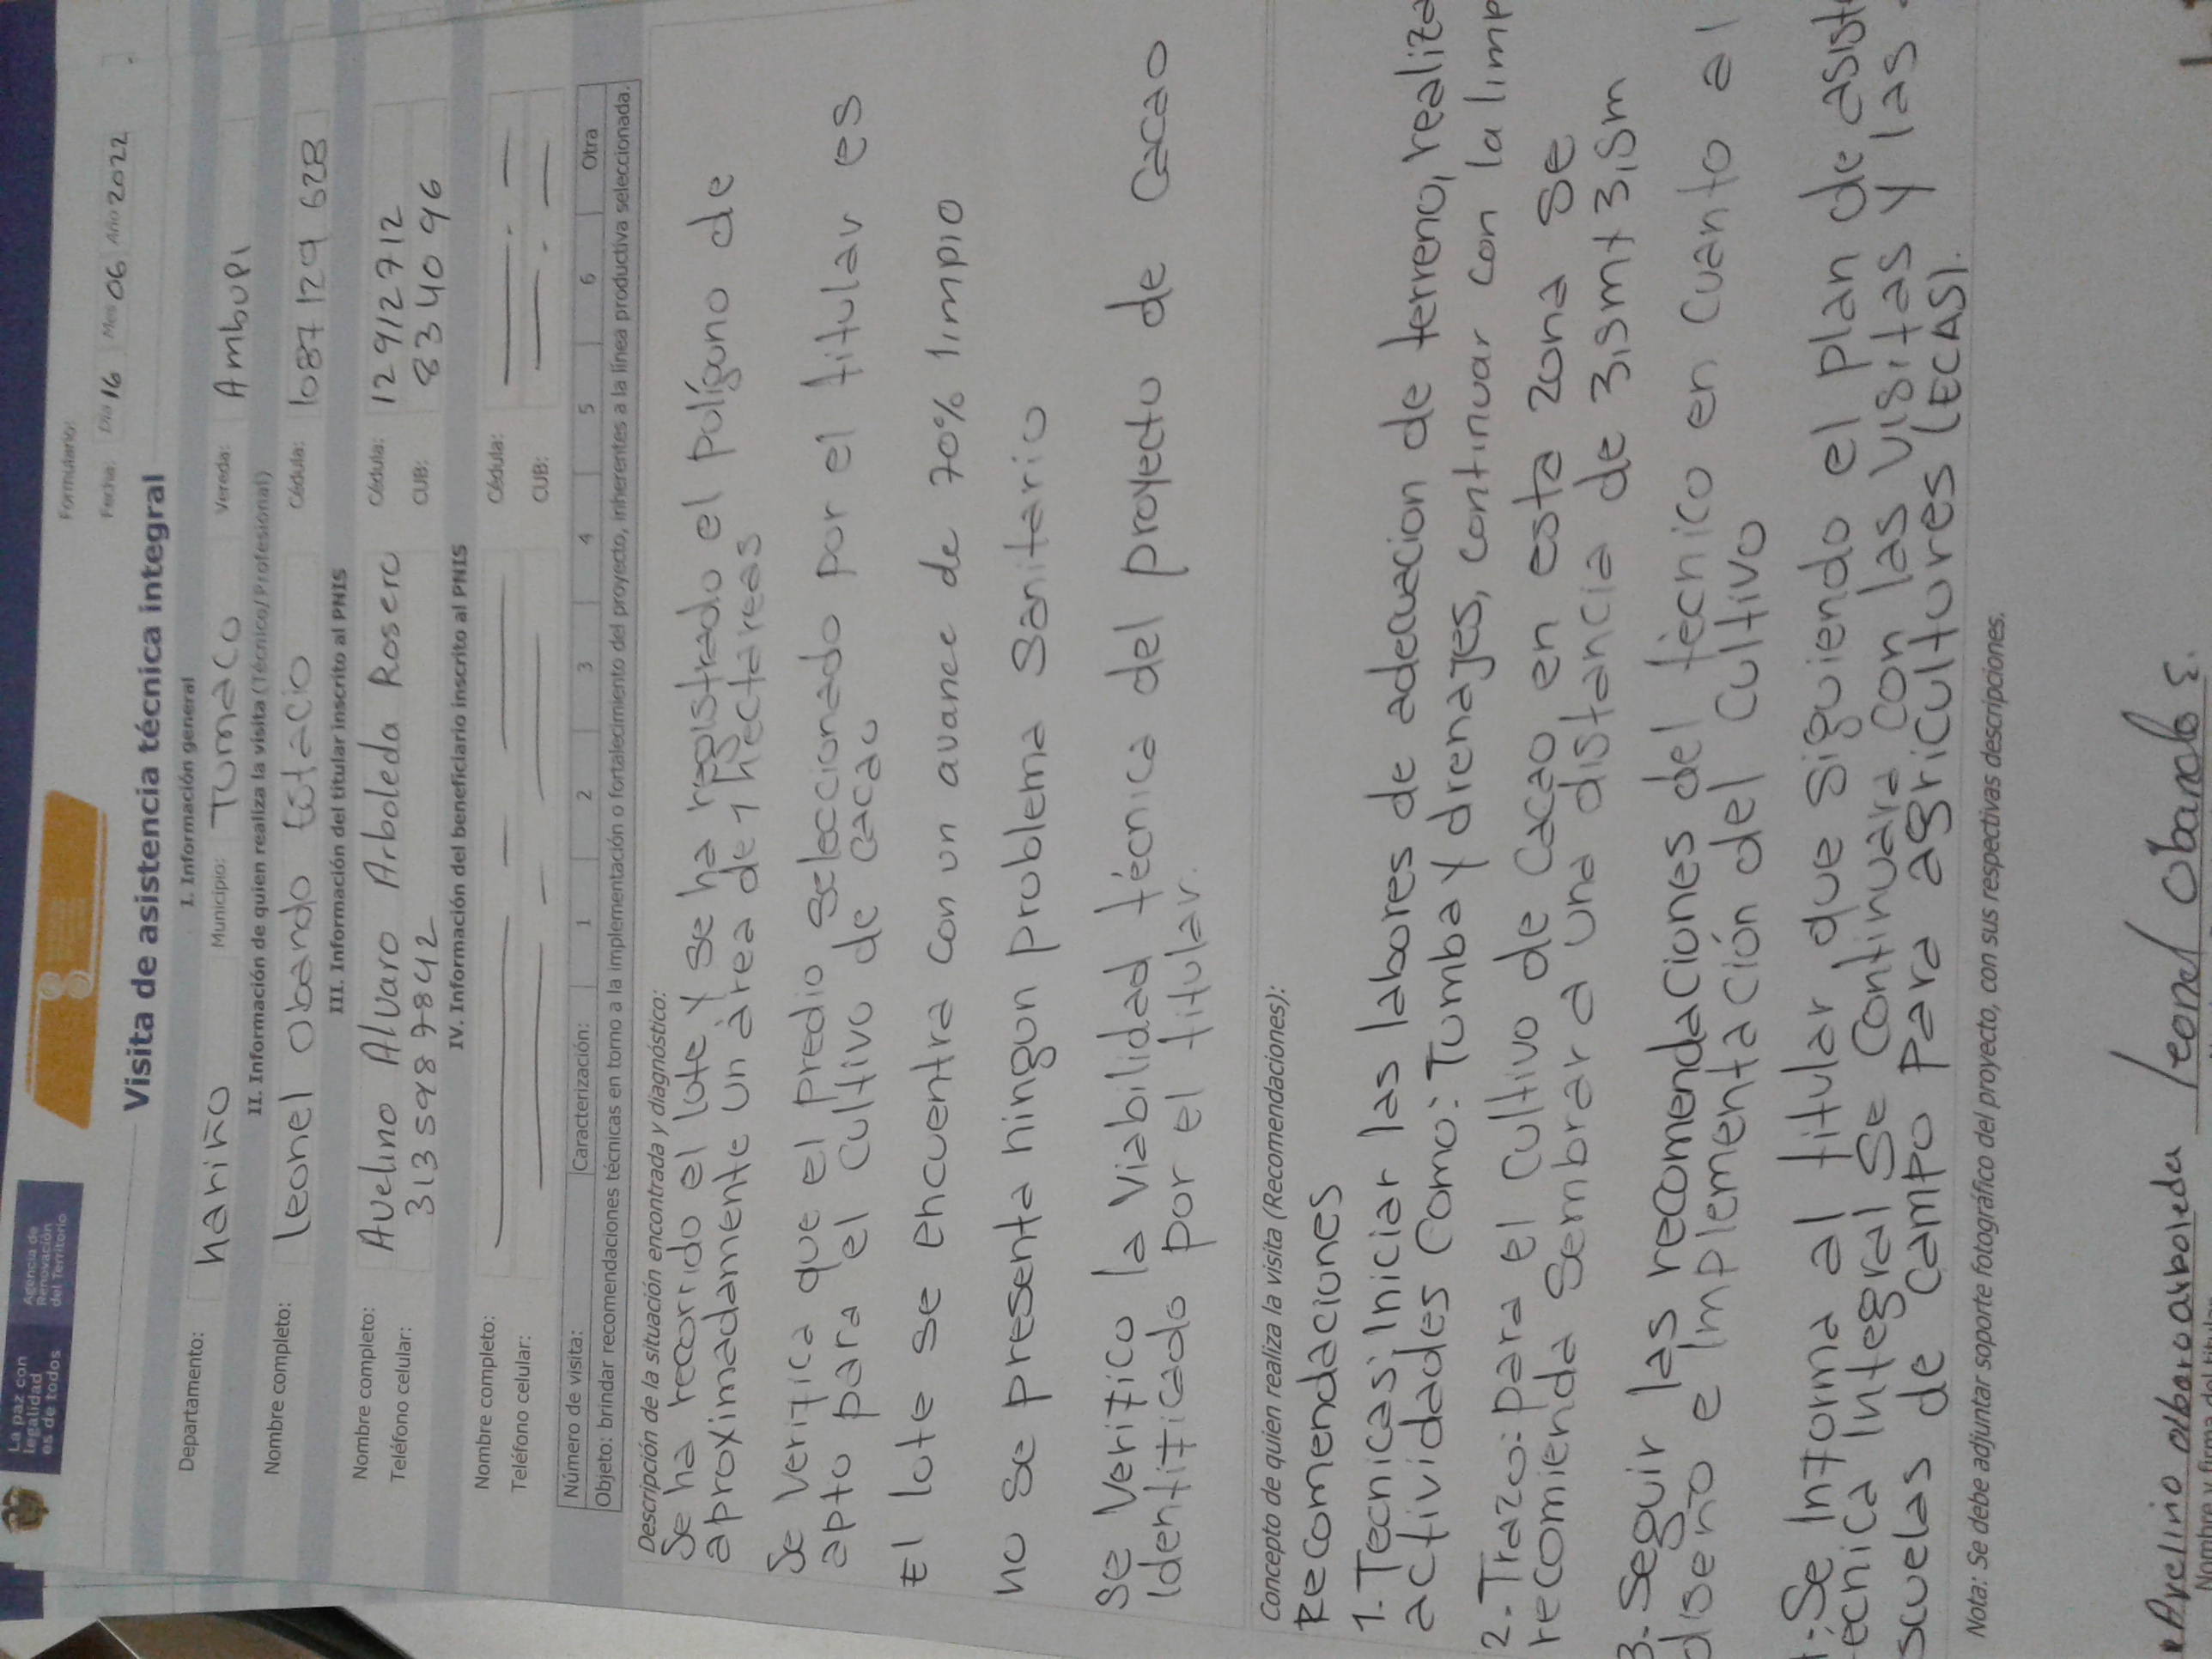 La paz con
legalidad
es de todos
Agencia de
Renovación
del Territorio
Formulario:
Fecha: Día 16 Mes 06 Año 2022
Visita de asistencia técnica integral
I. Información general
Departamento: nariño Municipio: Tumaco Vereda: Ambupi
II. Información de quien realiza la visita (Técnico/Profesional)
Nombre completo: leonel Obando Estacio Cédula: 1087 129 628
III. Información del titular inscrito al PNIS
Nombre completo: Avelino Alvaro Arboleda Rosero Cédula: 12912712
Teléfono celular: 3135987842 CUB: 834096
IV. Información del beneficiario inscrito al PNIS
Nombre completo: Cédula:
Teléfono celular: CUB:
Número de visita: Caracterización: 1 2 3 4 5 6 Otra
Objeto: brindar recomendaciones técnicas en torno a la implementación o fortalecimiento del proyecto, inherentes a la línea productiva seleccionada.
Descripción de la situación encontrada y diagnóstico:
Se ha recorrido el lote y se ha registrado el polígono de
aproximadamente un área de 1 hectareas
Se Verifica que el predio seleccionado por el titular es
apto para el cultivo de cacao
El lote se encuentra con un avance de 70% limpio
no se presenta ningun problema Sanitario
Se Verifico la Viabilidad técnica del proyecto de Cacao
Identificado por el titular.
Concepto de quien realiza la visita (Recomendaciones):
Recomendaciones
1. Tecnicas: Iniciar las labores de adecuacion de terreno, realiza
actividades como: Tumba y drenajes, continuar con la limp
2.- Trazo: para el cultivo de Cacao en esta zona se
recomienda sembrar a una distancia de 3,5mt 3,5m
3.- Seguir las recomendaciones del técnico en cuanto al
diseño e Implementación del cultivo
.- Se Informa al titular que siguiendo el plan de asist
écnica Integral se continuara con las visitas y las
scuelas de campo para agricultores (ECAS).
Nota: Se debe adjuntar soporte fotográfico del proyecto, con sus respectivas descripciones.
Avelino albaro arboleda leonel Obando E.
Nombre y firma del titular